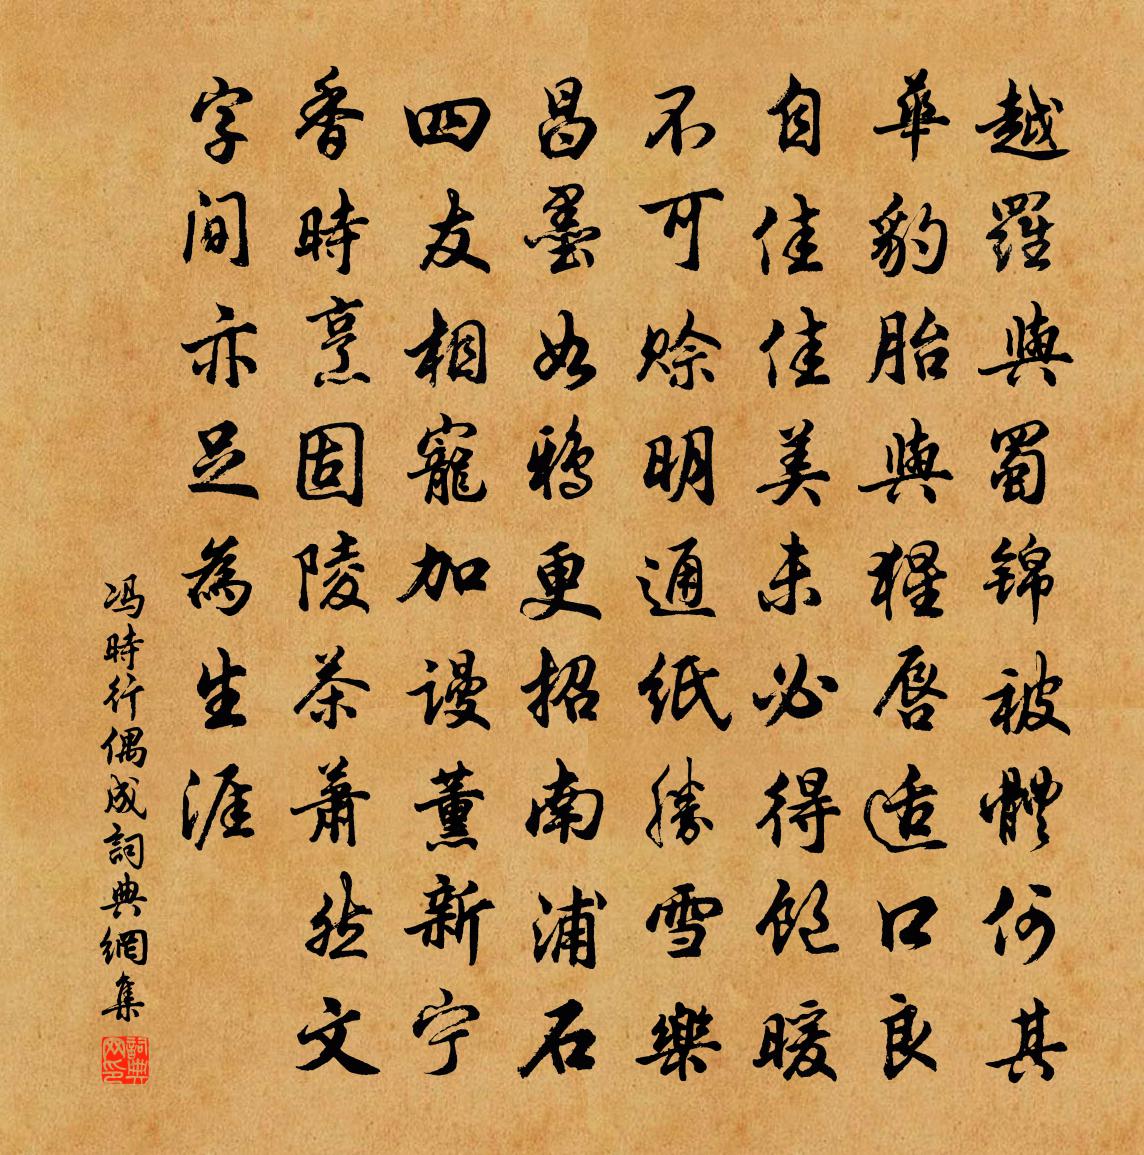 越羅與蜀錦被體何其
華豹胎與猩唇适口良
自佳佳美未必得飽暖
不可賒明通紙勝雪樂
昌墨如鴉更招南浦石
四友相寵加謾薰新宁
香時烹固陵茶蕭然文
字間亦足為生涯
冯時行偶成詞典網集
詞典网印